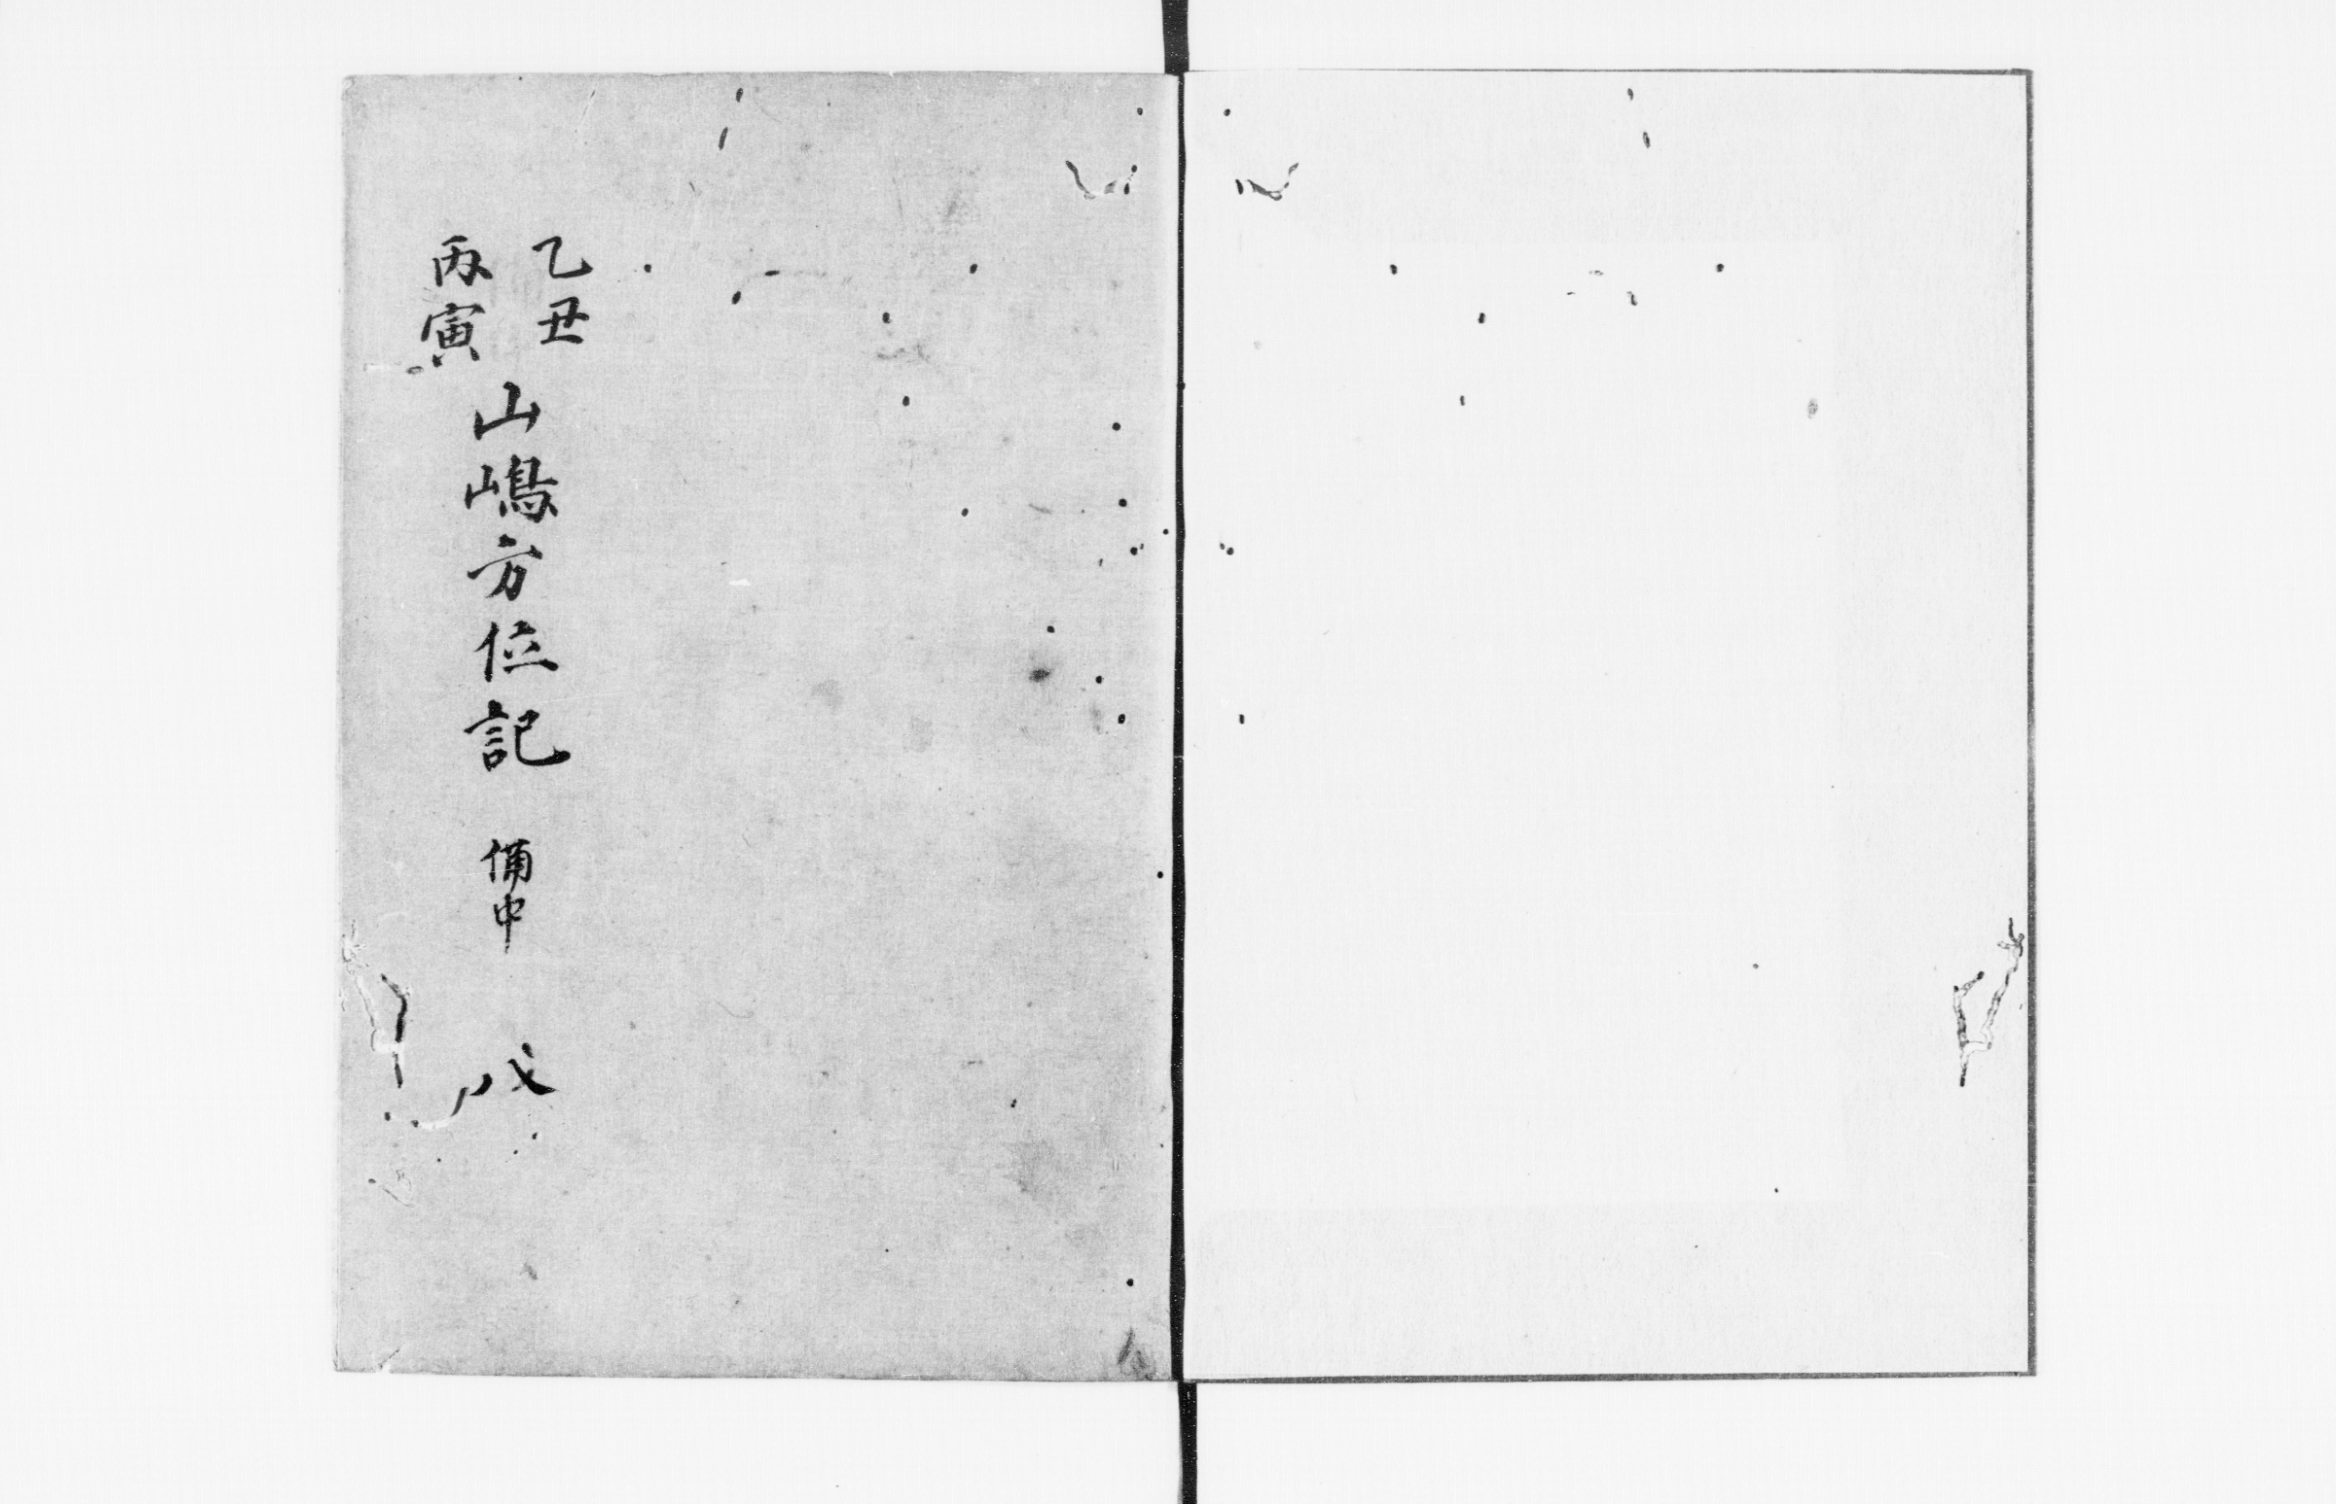 乙丑
丙寅
山嶋方位記 備中 八